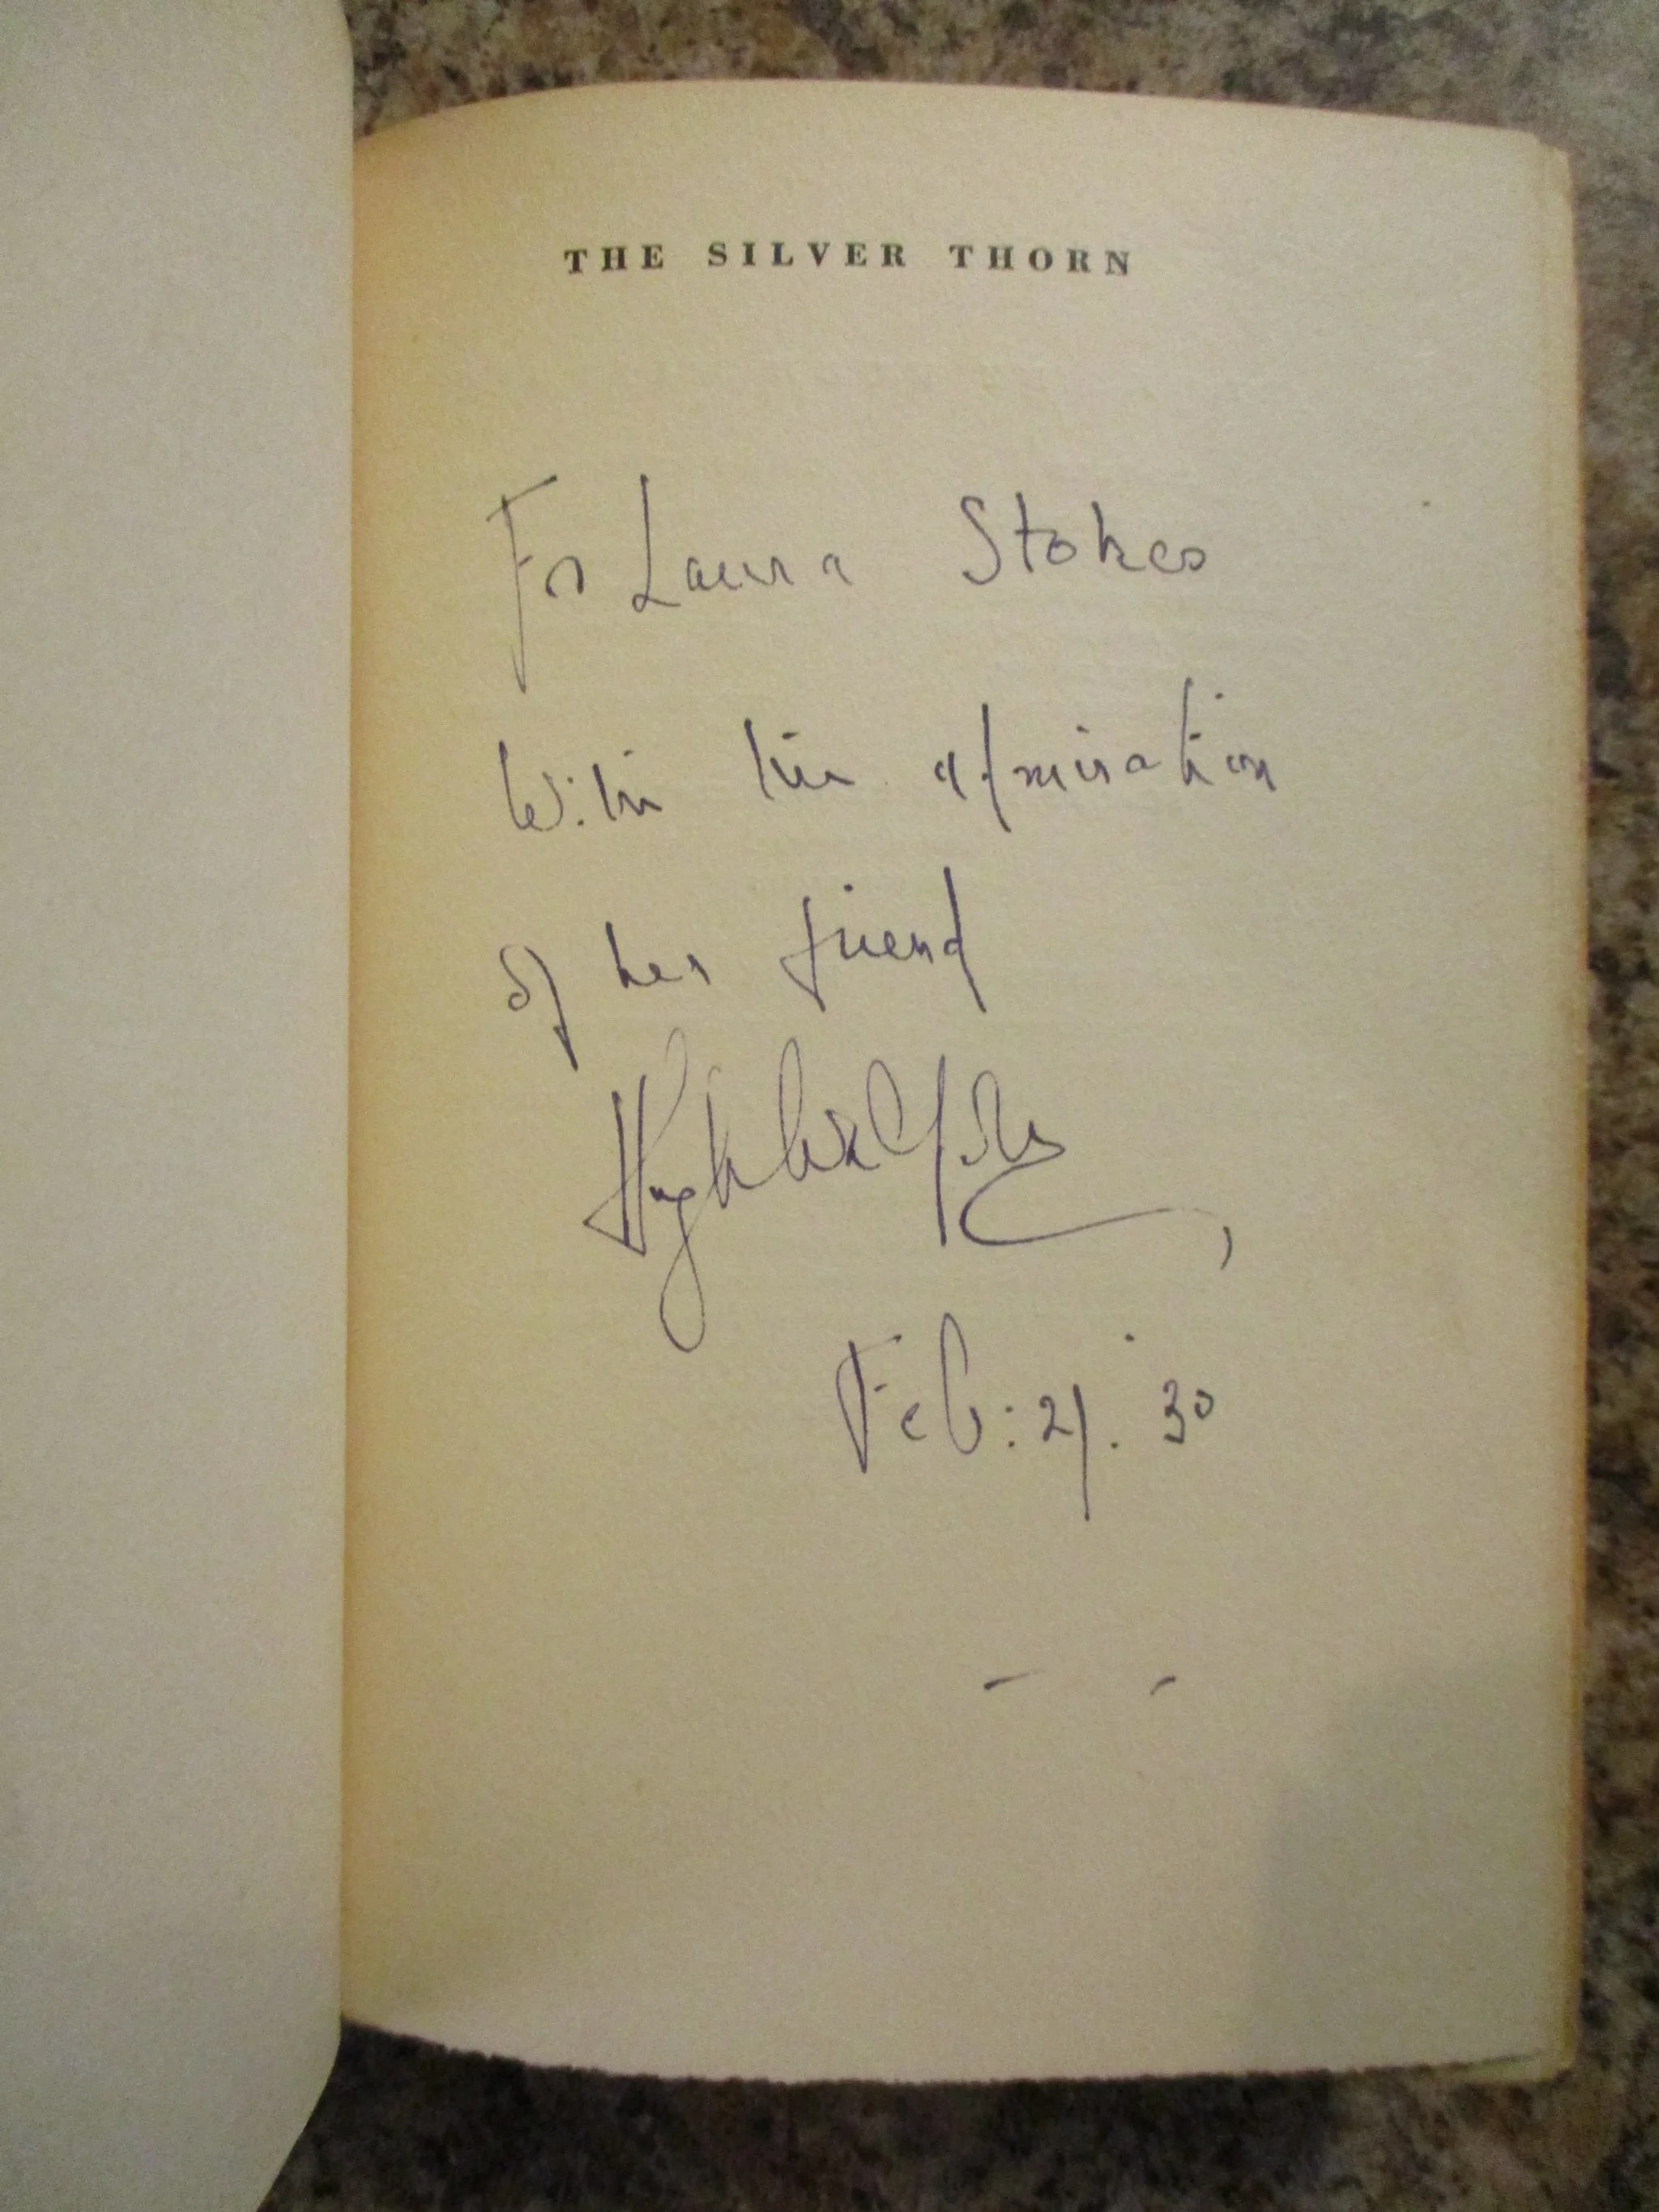 THE SILVER THORN
For Laura Stokes
With the admiration
of her friend
Hugh Walpole
Feb: 21. 30